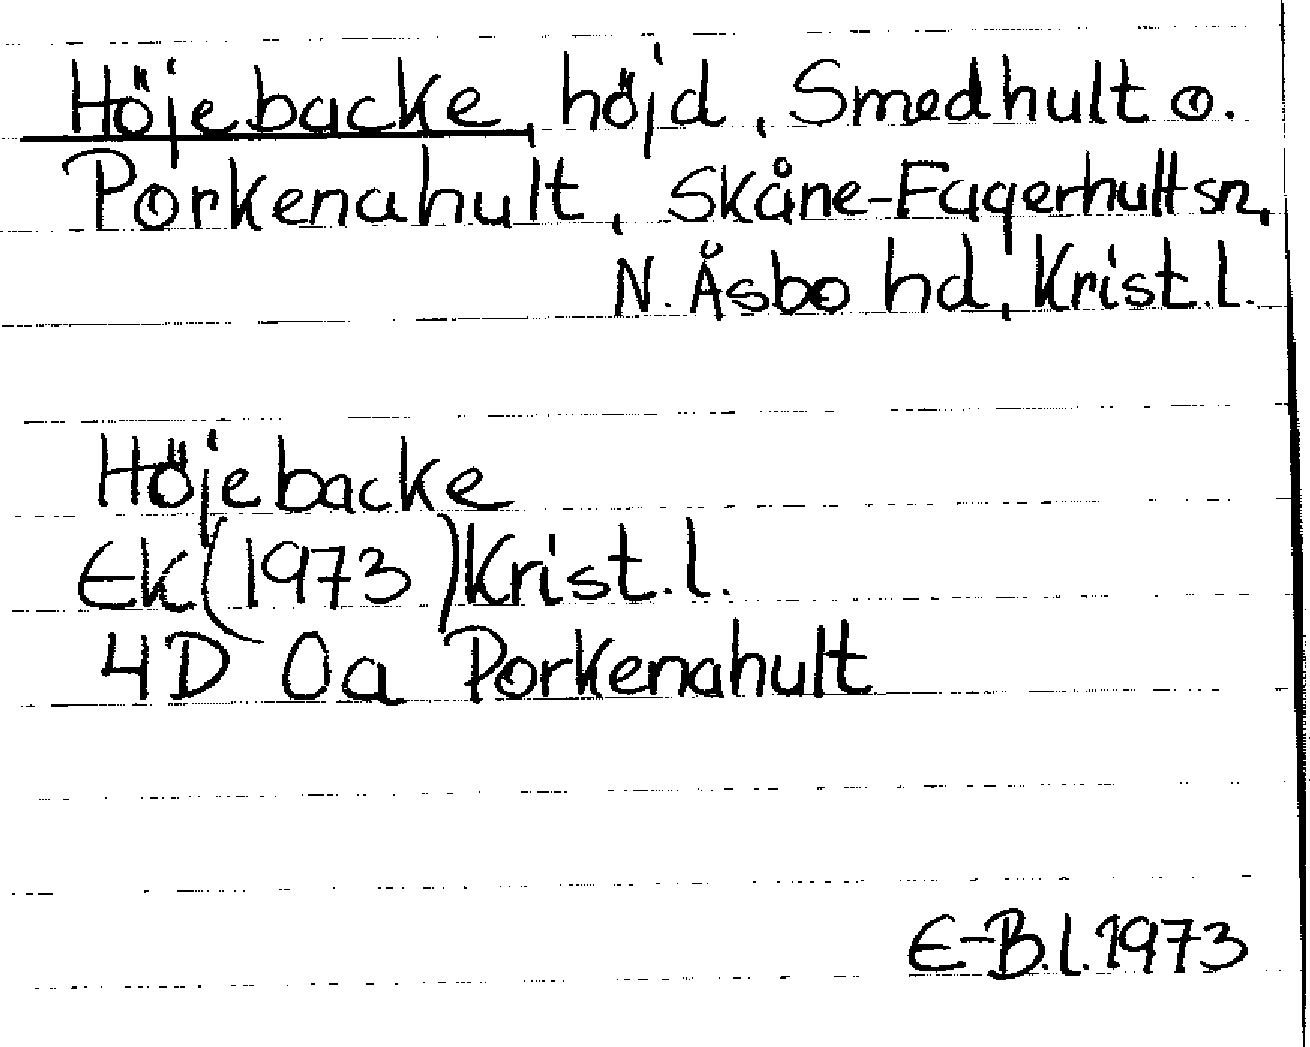 Höjebacke, höjd, Smedhult o.
Porkenahult, Skåne-Fagerhult sn,
N. Åsbo hd, Krist. l.
Höjebacke
Ek (1973) Krist. l.
4D 0a Porkenahult
E-B.L.1973